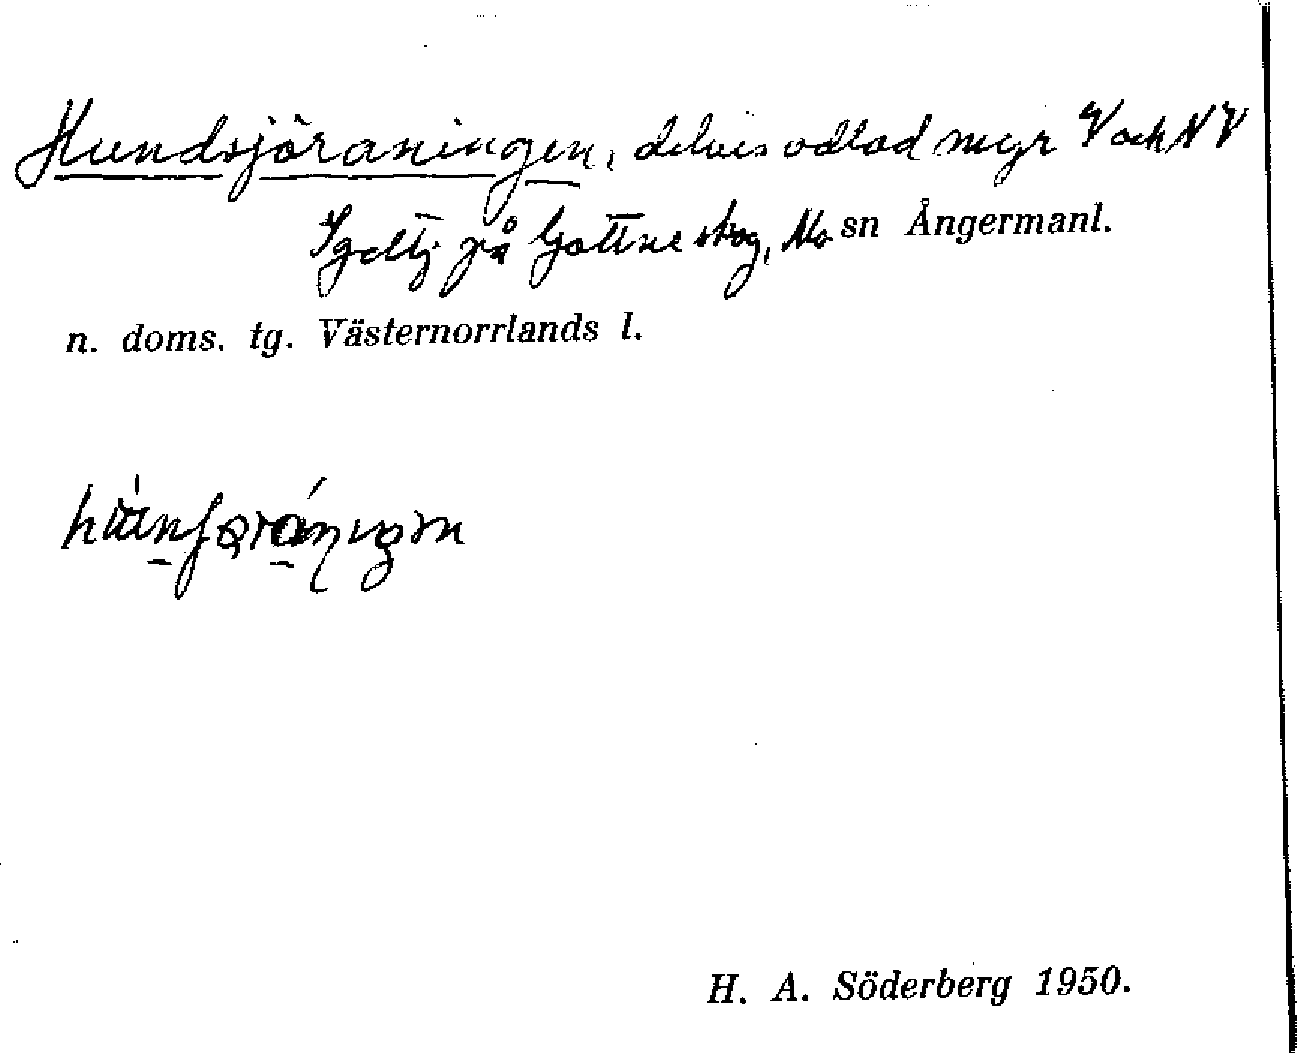 Hundsjöraningen, delvis odlad myr V och NV
Igeltj på Gottne skog, Mo sn Ångermanl.
n. doms. tg. Västernorrlands l.
H. A. Söderberg 1950.